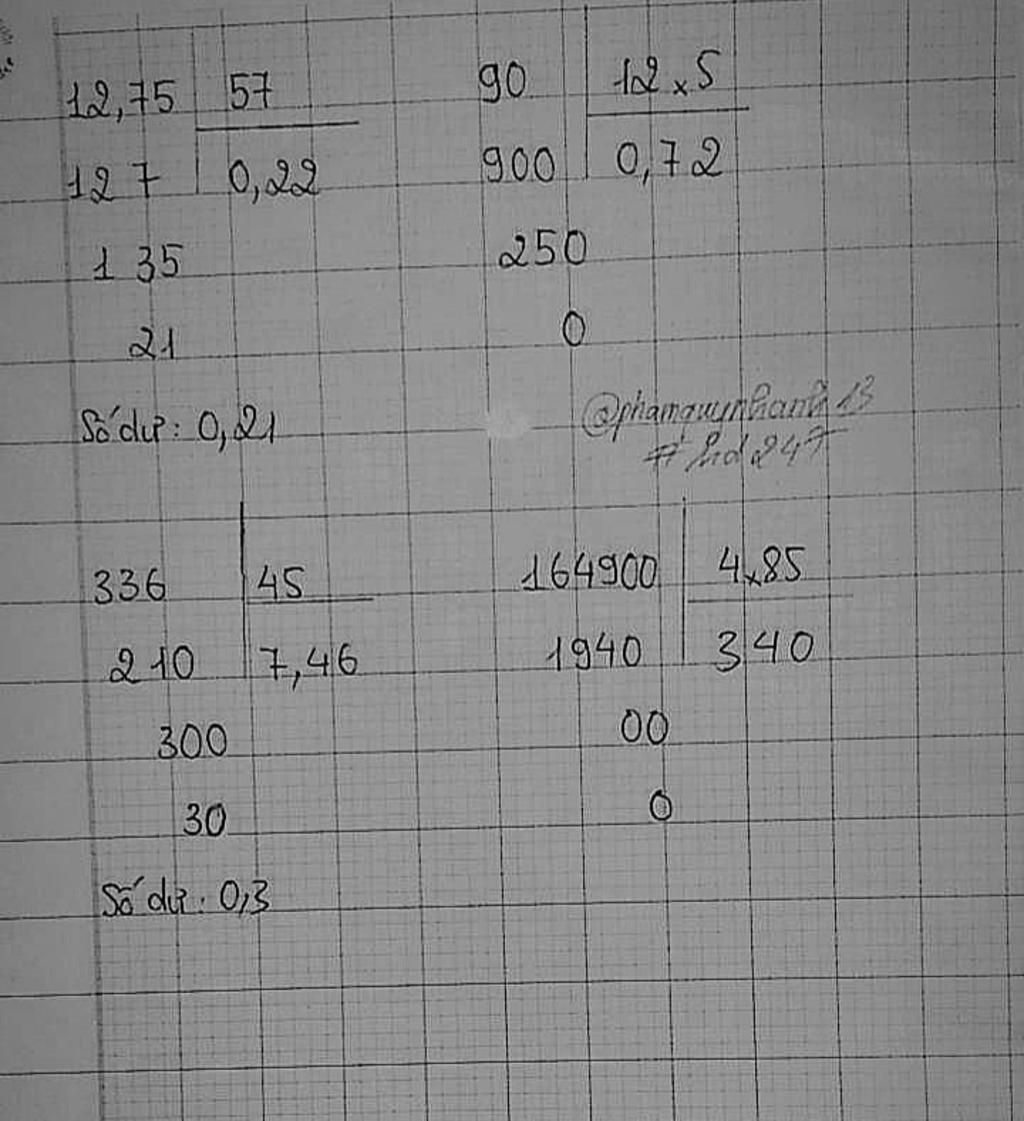 12,75 57 90 12x5
127 0,22 900 0,72
1 35 250
21 0
Số dư: 0,21
#hd247
336 45 164900 4x85
210 7,46 1940 340
300 00
30 0
Số dư: 0,3